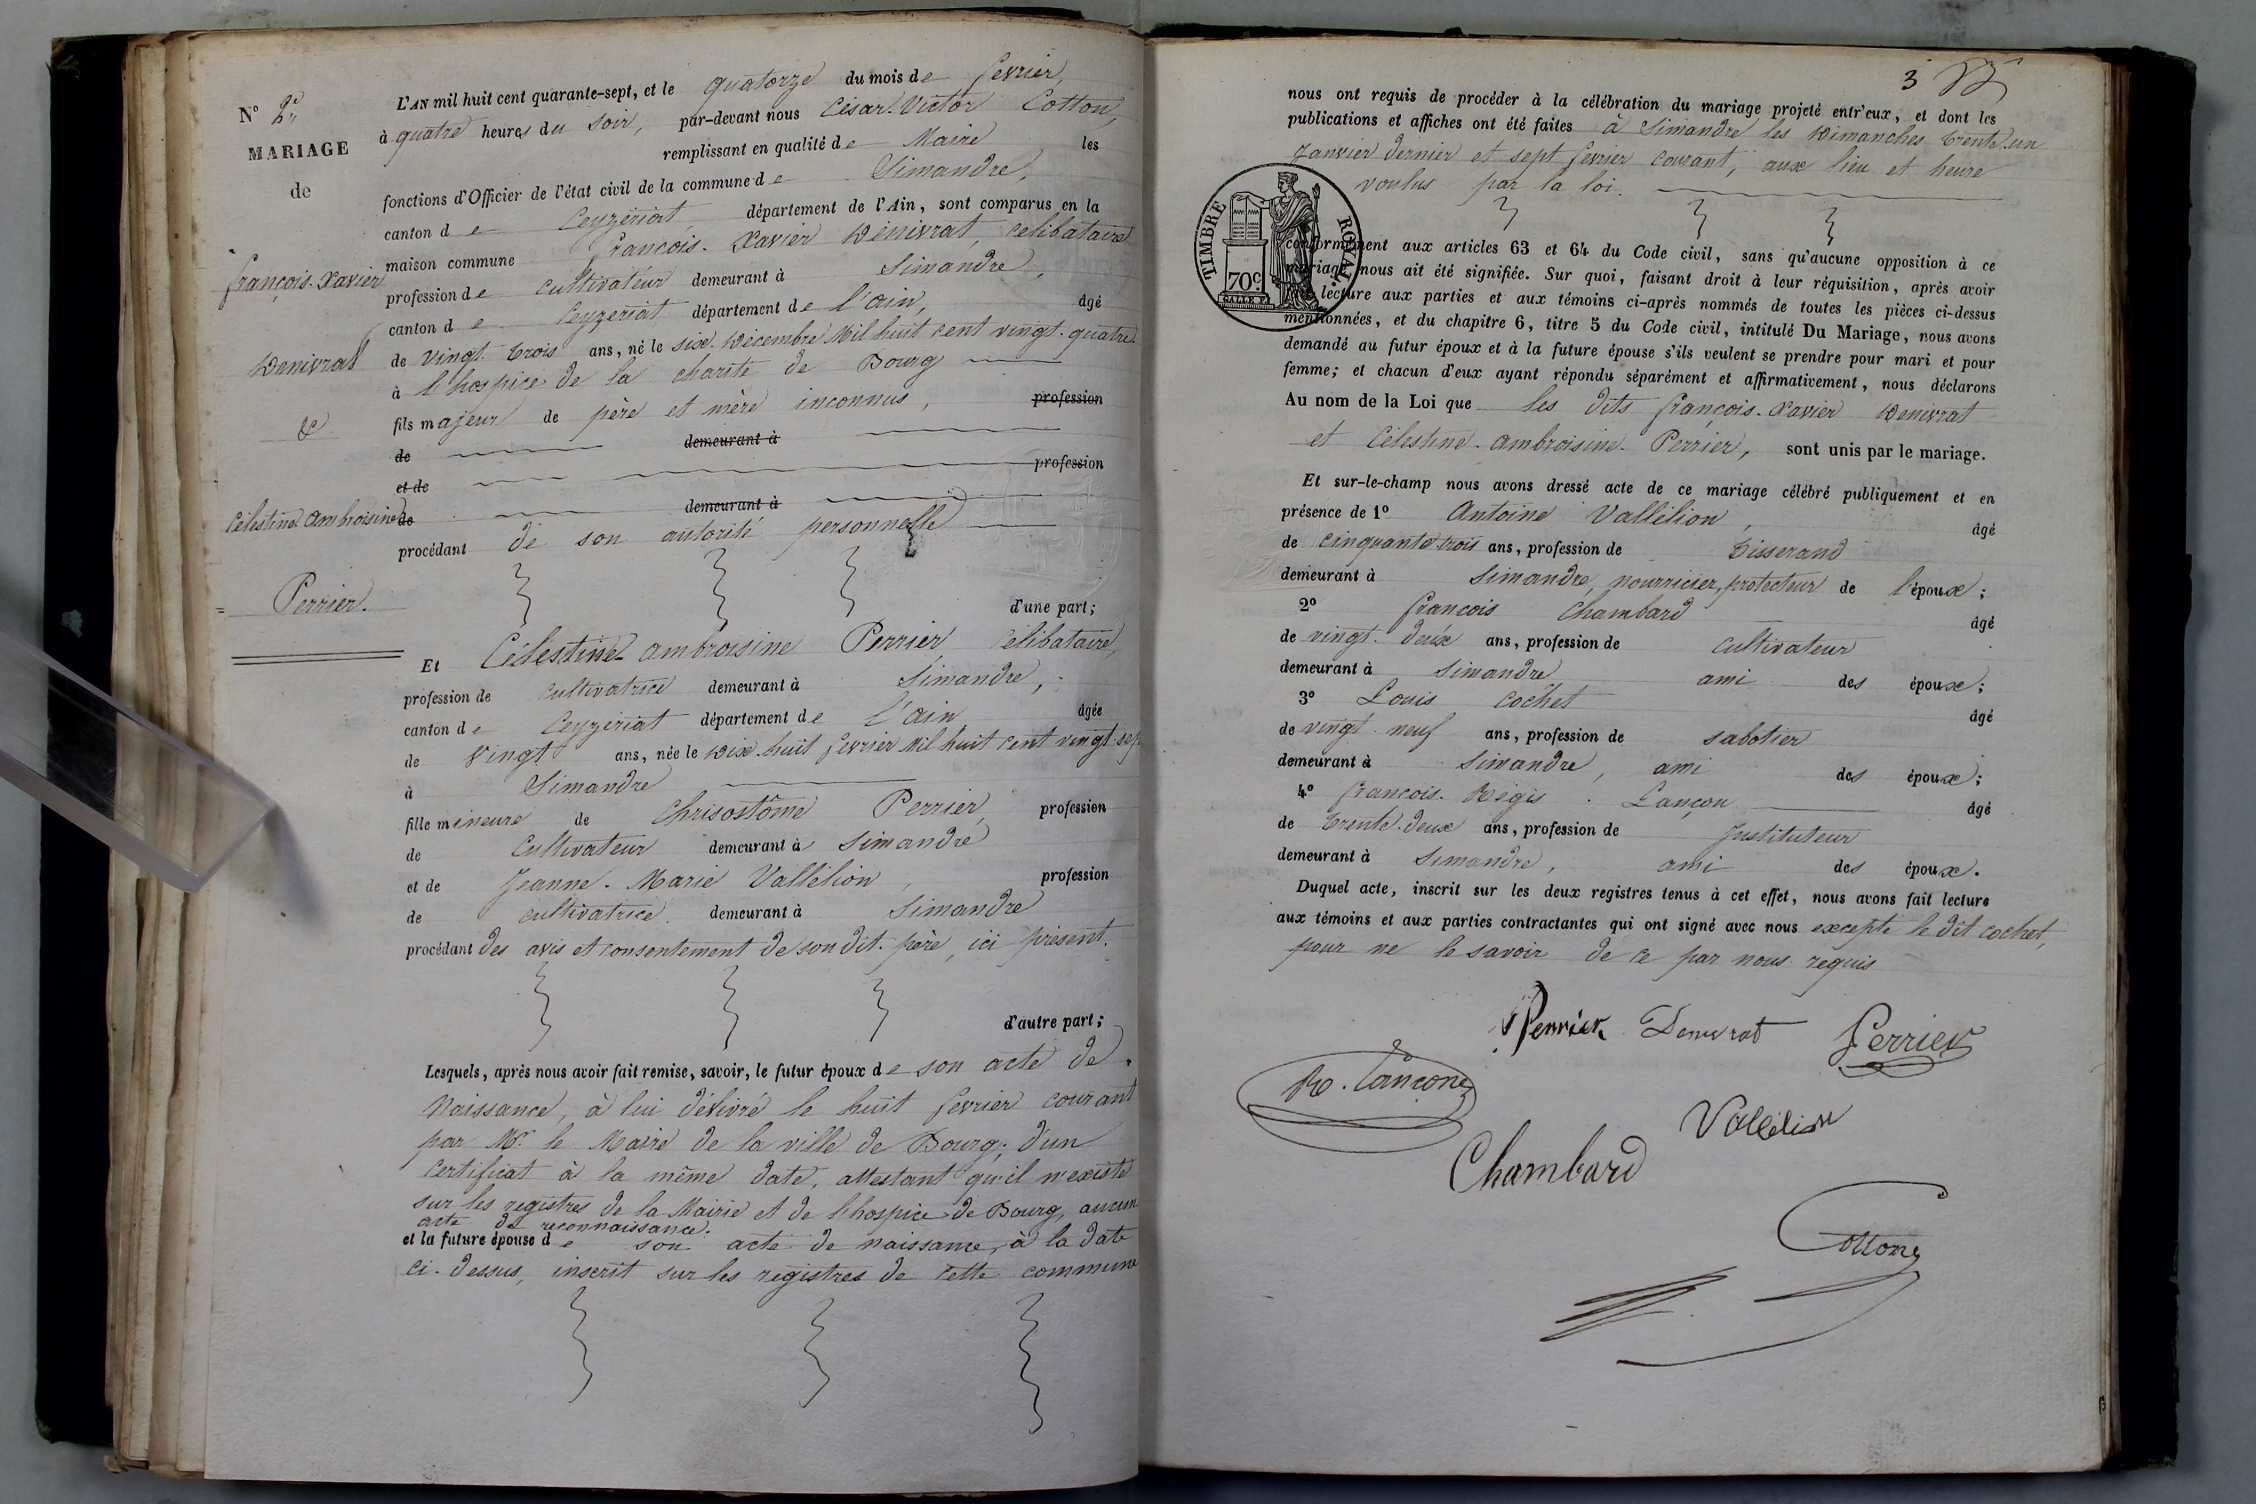 N° 2e
MARIAGE
de
françois-Xavier
Denivrat
&
Célestine Ambroisine
Perrier.
L'AN mil huit cent quarante-sept, et le quatorze du mois de fevrier,
à quatre heures du soir, par-devant nous César-Victor Cotton,
remplissant en qualité de Maire les
fonctions d'Officier de l'état civil de la commune de Simandre,
canton de Ceyzériat département de l'Ain, sont comparus en la
maison commune françois-Xavier Denivrat, celibataire
profession de cultivateur demeurant à Simandre,
canton de Ceyzériat département de l'ain, âgé
de vingt-trois ans, né le six Décembre Mil huit cent vingt-quatre
à l'hospice de la charité de Bourg
fils majeur de père et mère inconnus, profession
de demeurant à
et de profession
de demeurant à
procédant de son autorité personnelle
d'une part;
Et Célestine-ambroisine Perrier célibataire,
profession de cultivatrice demeurant à Simandre,
canton de Ceyzériat département de l'ain âgée
de vingt ans, née le Dix-huit fevrier Mil huit cent vingt-sept
à Simandre
fille mineure de Chrisostôme Perrier, profession
de Cultivateur demeurant à Simandre
et de Jeanne-Marie Vallélion, profession
de cultivatrice demeurant à Simandre
procédant des avis et consentement de son dit-père, ici présent.
d'autre part;
Lesquels, après nous avoir fait remise, savoir, le futur époux de son acte de
Naissance, à lui délivré le huit fevrier courant
par Mr. le Maire de la ville de Bourg; d'un
certificat à la même date, attestant qu'il n'existe
sur les registres de la Mairie et de l'hospice de Bourg, aucun
acte de reconnaissance.
et la future épouse de son acte de naissance, à la date
ci-dessus, inscrit sur les registres de cette commune
3
nous ont requis de procéder à la célébration du mariage projeté entr'eux, et dont les
publications et affiches ont été faites à Simandre les Dimanches trente-un
Janvier dernier et sept fevrier courant, aux lieu et heure
voulus par la loi.
TIMBRE ROYAL.
70c
conformément aux articles 63 et 64 du Code civil, sans qu'aucune opposition à ce
mariage nous ait été signifiée. Sur quoi, faisant droit à leur réquisition, après avoir
lecture aux parties et aux témoins ci-après nommés de toutes les pièces ci-dessus
mentionnées, et du chapitre 6, titre 5 du Code civil, intitulé Du Mariage, nous avons
demandé au futur époux et à la future épouse s'ils veulent se prendre pour mari et pour
femme; et chacun d'eux ayant répondu séparément et affirmativement, nous déclarons
Au nom de la Loi que les dits françois-Xavier Denivrat
et Célestine-ambroisine-Perrier, sont unis par le mariage.
Et sur-le-champ nous avons dressé acte de ce mariage célébré publiquement et en
présence de 1° Antoine Vallélion, âgé
de cinquante-trois ans, profession de tisserand
demeurant à Simandre, nourricier, protecteur de l'époux;
2° françois Chambard âgé
de vingt-deux ans, profession de cultivateur
demeurant à Simandre, ami des époux;
3° Louis Cochet âgé
de vingt-neuf ans, profession de sabotier
demeurant à Simandre, ami des époux;
4° francois-Régis Lançon âgé
de trente-deux ans, profession de Instituteur
demeurant à Simandre, ami des époux.
Duquel acte, inscrit sur les deux registres tenus à cet effet, nous avons fait lecture
aux témoins et aux parties contractantes qui ont signé avec nous excepté le dit cochet,
pour ne le savoir de ce par nous requis
Perrier Denivrat Perrier
R. Lançon
Vallélion
Chambard
Cotton